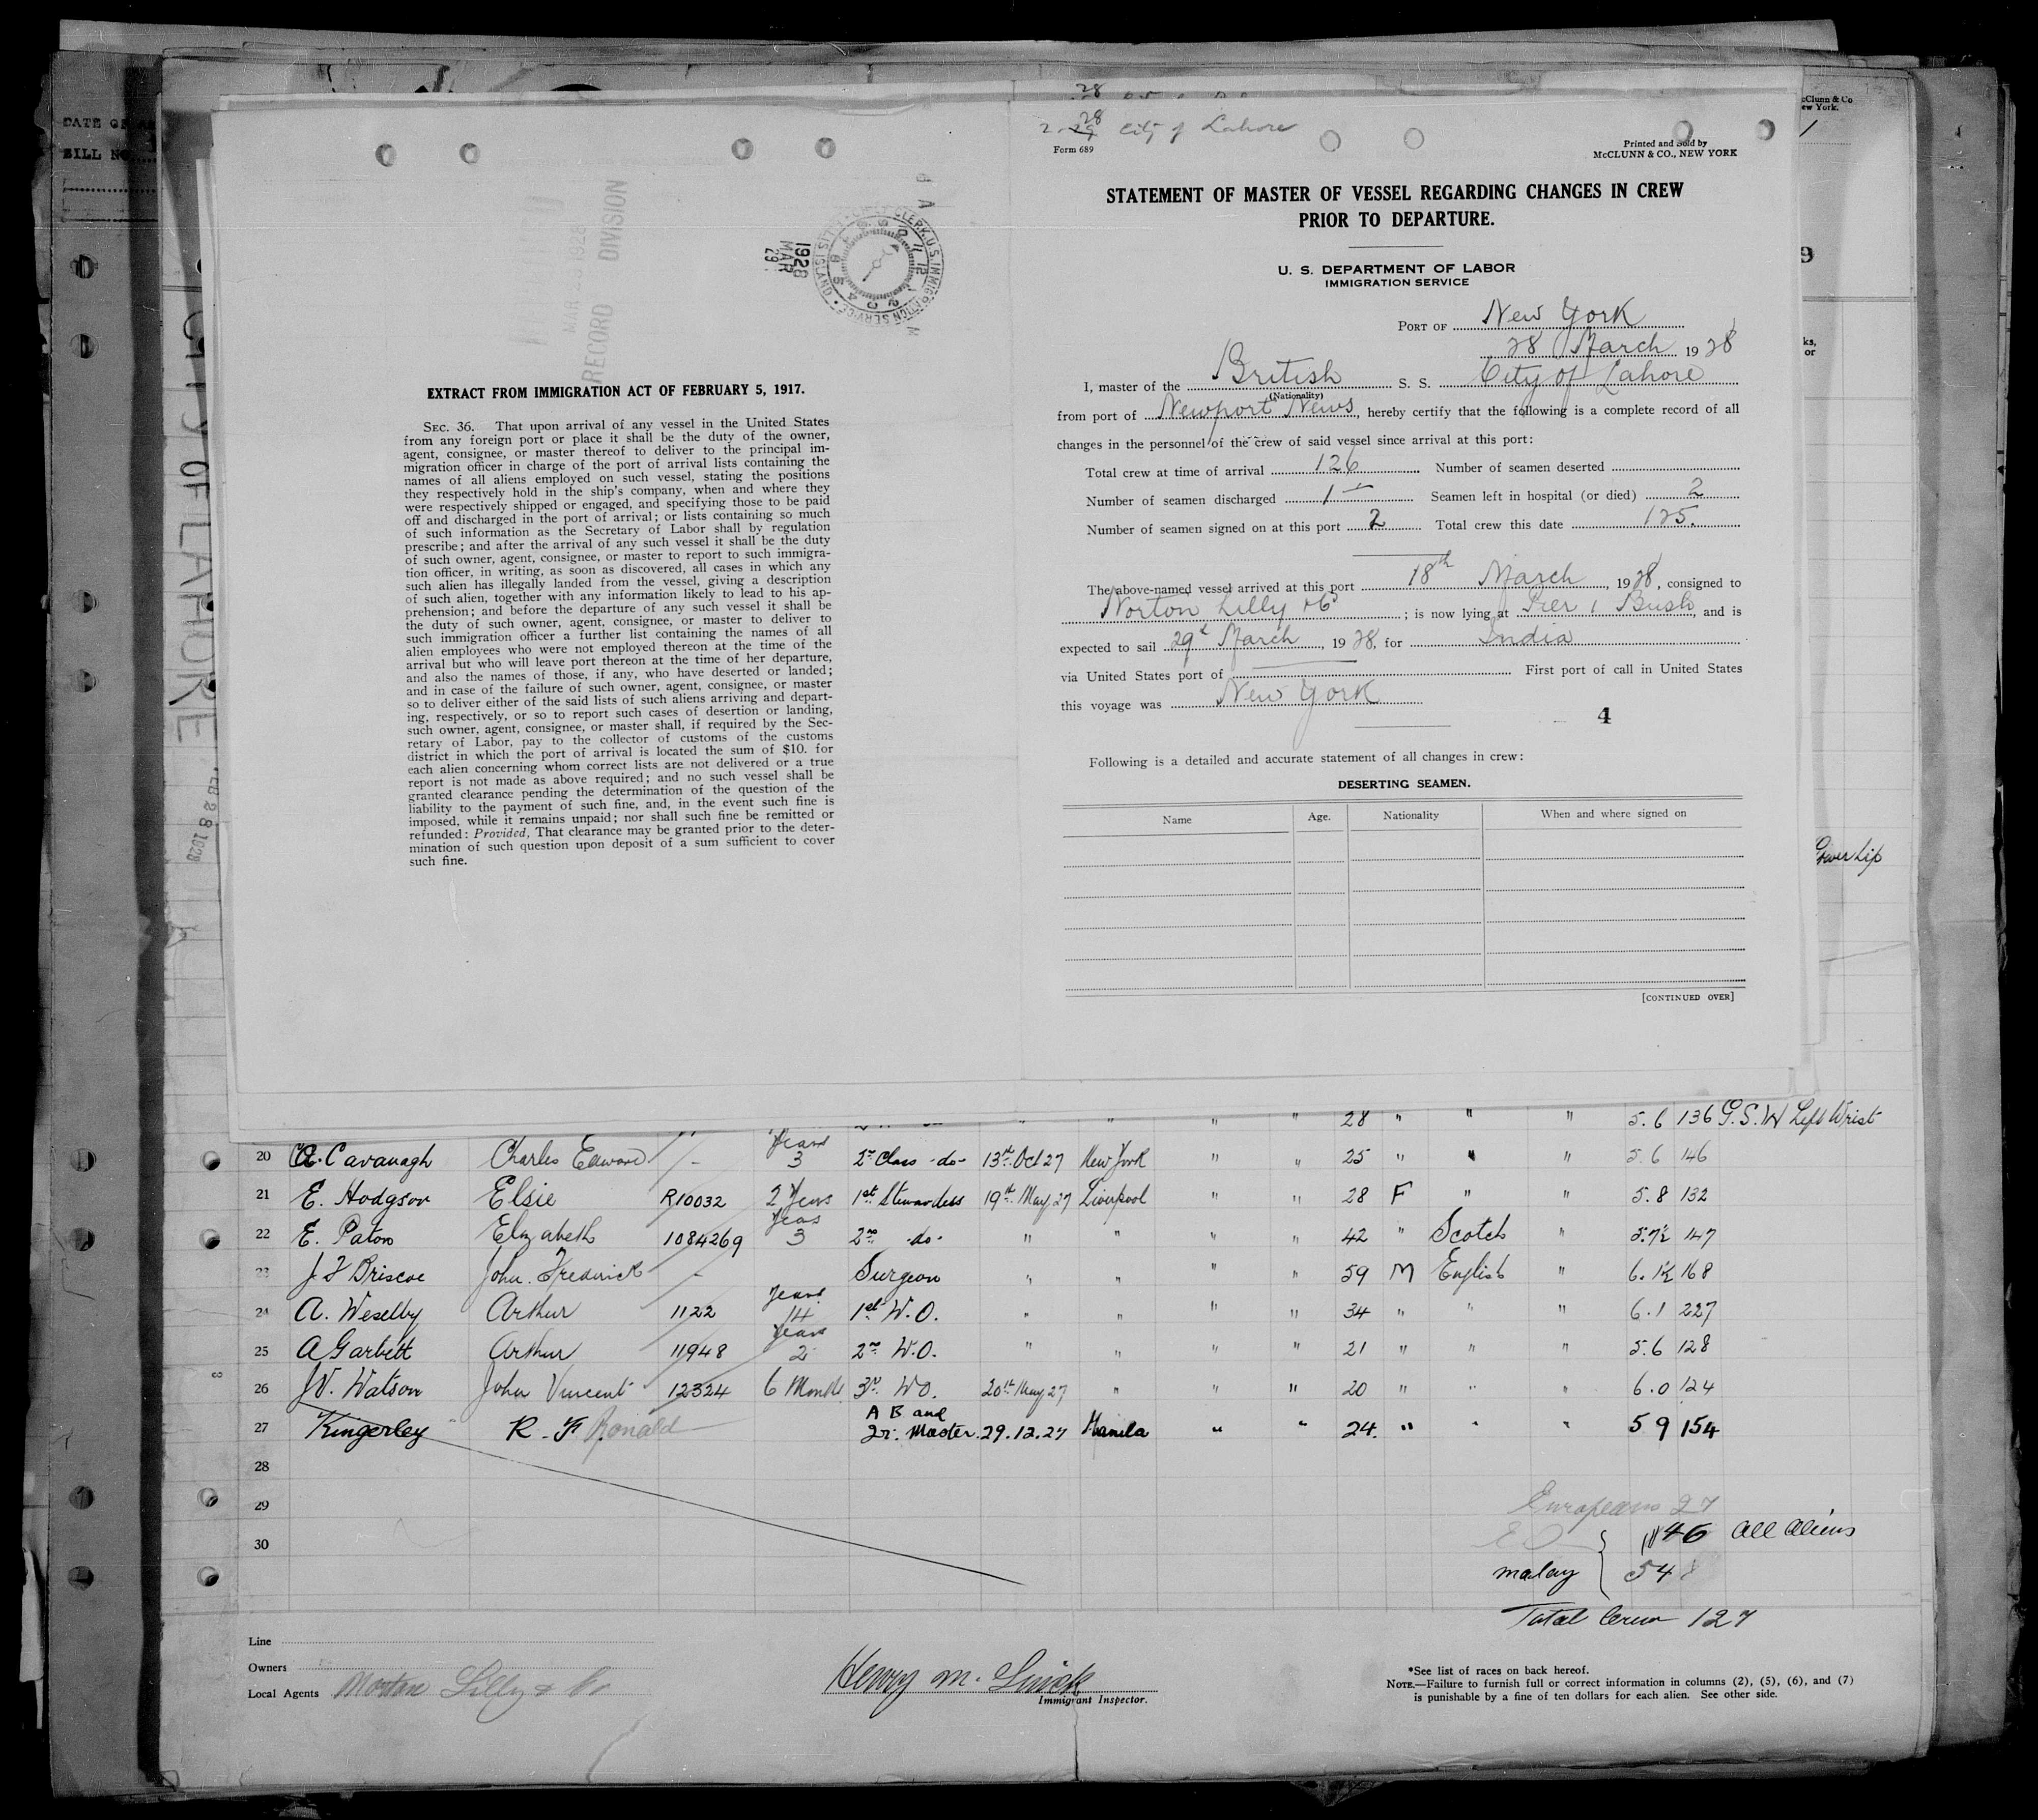 DATE OF
BILL NO.
CITY OF LAHORE
1928
RECORD DIVISION
MAR 1928
1928
MAR
29
EXTRACT FROM IMMIGRATION ACT OF FEBRUARY 5, 1917.
SEC. 36. That upon arrival of any vessel in the United States
from any foreign port or place it shall be the duty of the owner,
agent, consignee, or master thereof to deliver to the principal im-
migration officer in charge of the port of arrival lists containing the
names of all aliens employed on such vessel, stating the positions
they respectively hold in the ship's company, when and where they
were respectively shipped or engaged, and specifying those to be paid
off and discharged in the port of arrival; or lists containing so much
of such information as the Secretary of Labor shall by regulation
prescribe; and after the arrival of any such vessel it shall be the duty
of such owner, agent, consignee, or master to report to such immigra-
tion officer, in writing, as soon as discovered, all cases in which any
such alien has illegally landed from the vessel, giving a description
of such alien, together with any information likely to lead to his ap-
prehension; and before the departure of any such vessel it shall be
the duty of such owner, agent, consignee, or master to deliver to
such immigration officer a further list containing the names of all
alien employees who were not employed thereon at the time of the
arrival but who will leave port thereon at the time of her departure,
and also the names of those, if any, who have deserted or landed;
and in case of the failure of such owner, agent, consignee, or master
so to deliver either of the said lists of such aliens arriving and depart-
ing, respectively, or so to report such cases of desertion or landing,
such owner, agent, consignee, or master shall, if required by the Sec-
retary of Labor, pay to the collector of customs of the customs
district in which the port of arrival is located the sum of $10. for
each alien concerning whom correct lists are not delivered or a true
report is not made as above required; and no such vessel shall be
granted clearance pending the determination of the question of the
liability to the payment of such fine, and, in the event such fine is
imposed, while it remains unpaid; nor shall such fine be remitted or
refunded: Provided, That clearance may be granted prior to the deter-
mination of such question upon deposit of a sum sufficient to cover
such fine.
28
City of Lahore
Form 689
Printed and Sold by
McCLUNN & CO., NEW YORK
STATEMENT OF MASTER OF VESSEL REGARDING CHANGES IN CREW
PRIOR TO DEPARTURE.
U. S. DEPARTMENT OF LABOR
IMMIGRATION SERVICE
PORT OF New York
28 March 1928
I, master of the British S. S. City of Lahore
(Nationality)
from port of Newport News, hereby certify that the following is a complete record of all
changes in the personnel of the crew of said vessel since arrival at this port:
Total crew at time of arrival 126 Number of seamen deserted
Number of seamen discharged 1 Seamen left in hospital (or died) 2
Number of seamen signed on at this port 2 Total crew this date 125.
The above-named vessel arrived at this port 18th March, 1928, consigned to
Norton Lilly & Co; is now lying at Pier 1 Bush, and is
expected to sail 29th March, 1928, for India
via United States port of First port of call in United States
this voyage was New York
4
Following is a detailed and accurate statement of all changes in crew:
DESERTING SEAMEN.
Name Age. Nationality When and where signed on
[CONTINUED OVER]
McClunn & Co
New York.
Lower Lip
28 " " " 5.6 136 G.S.W Left Wrist
20 A. Cavanagh Charles Edward - Years 3 2nd Class -do- 13th Oct 27 New York " " 25 " " " 5.6 146
21 E. Hodgson Elsie R10032 2 Years 1st Stewardess 19th May 27 Liverpool " " 28 F " " 5.8 132
22 E. Paton Elizabeth 1084269 Years 3 2nd -do- " " " " 42 " Scotch " 5.7½ 147
23 J F Briscoe John Frederick - Surgeon " " " " 59 M English " 6.1½ 168
24 A. Weselby Arthur 1122 Years 14 1st W.O. " " " " 34 " " " 6.1 227
25 A Garbett Arthur 11948 Years 2 2nd W.O. " " " " 21 " " " 5.6 128
26 J.V. Watson John Vincent 12324 6 Months 3rd WO. 20th May 27 " " " 20 " " " 6.0 124
27 Kingerley R. F. Ronald A B and Qr. Master 29.12.27 Manila " " 24. " " " 5 9 154
28
29 Europeans 27
30 46 All Aliens
malay 54
Total Crew 127
Line
Owners
Local Agents Norton Lilly & Co
Henry M.
Immigrant Inspector.
*See list of races on back hereof.
NOTE.—Failure to furnish full or correct information in columns (2), (5), (6), and (7)
is punishable by a fine of ten dollars for each alien. See other side.